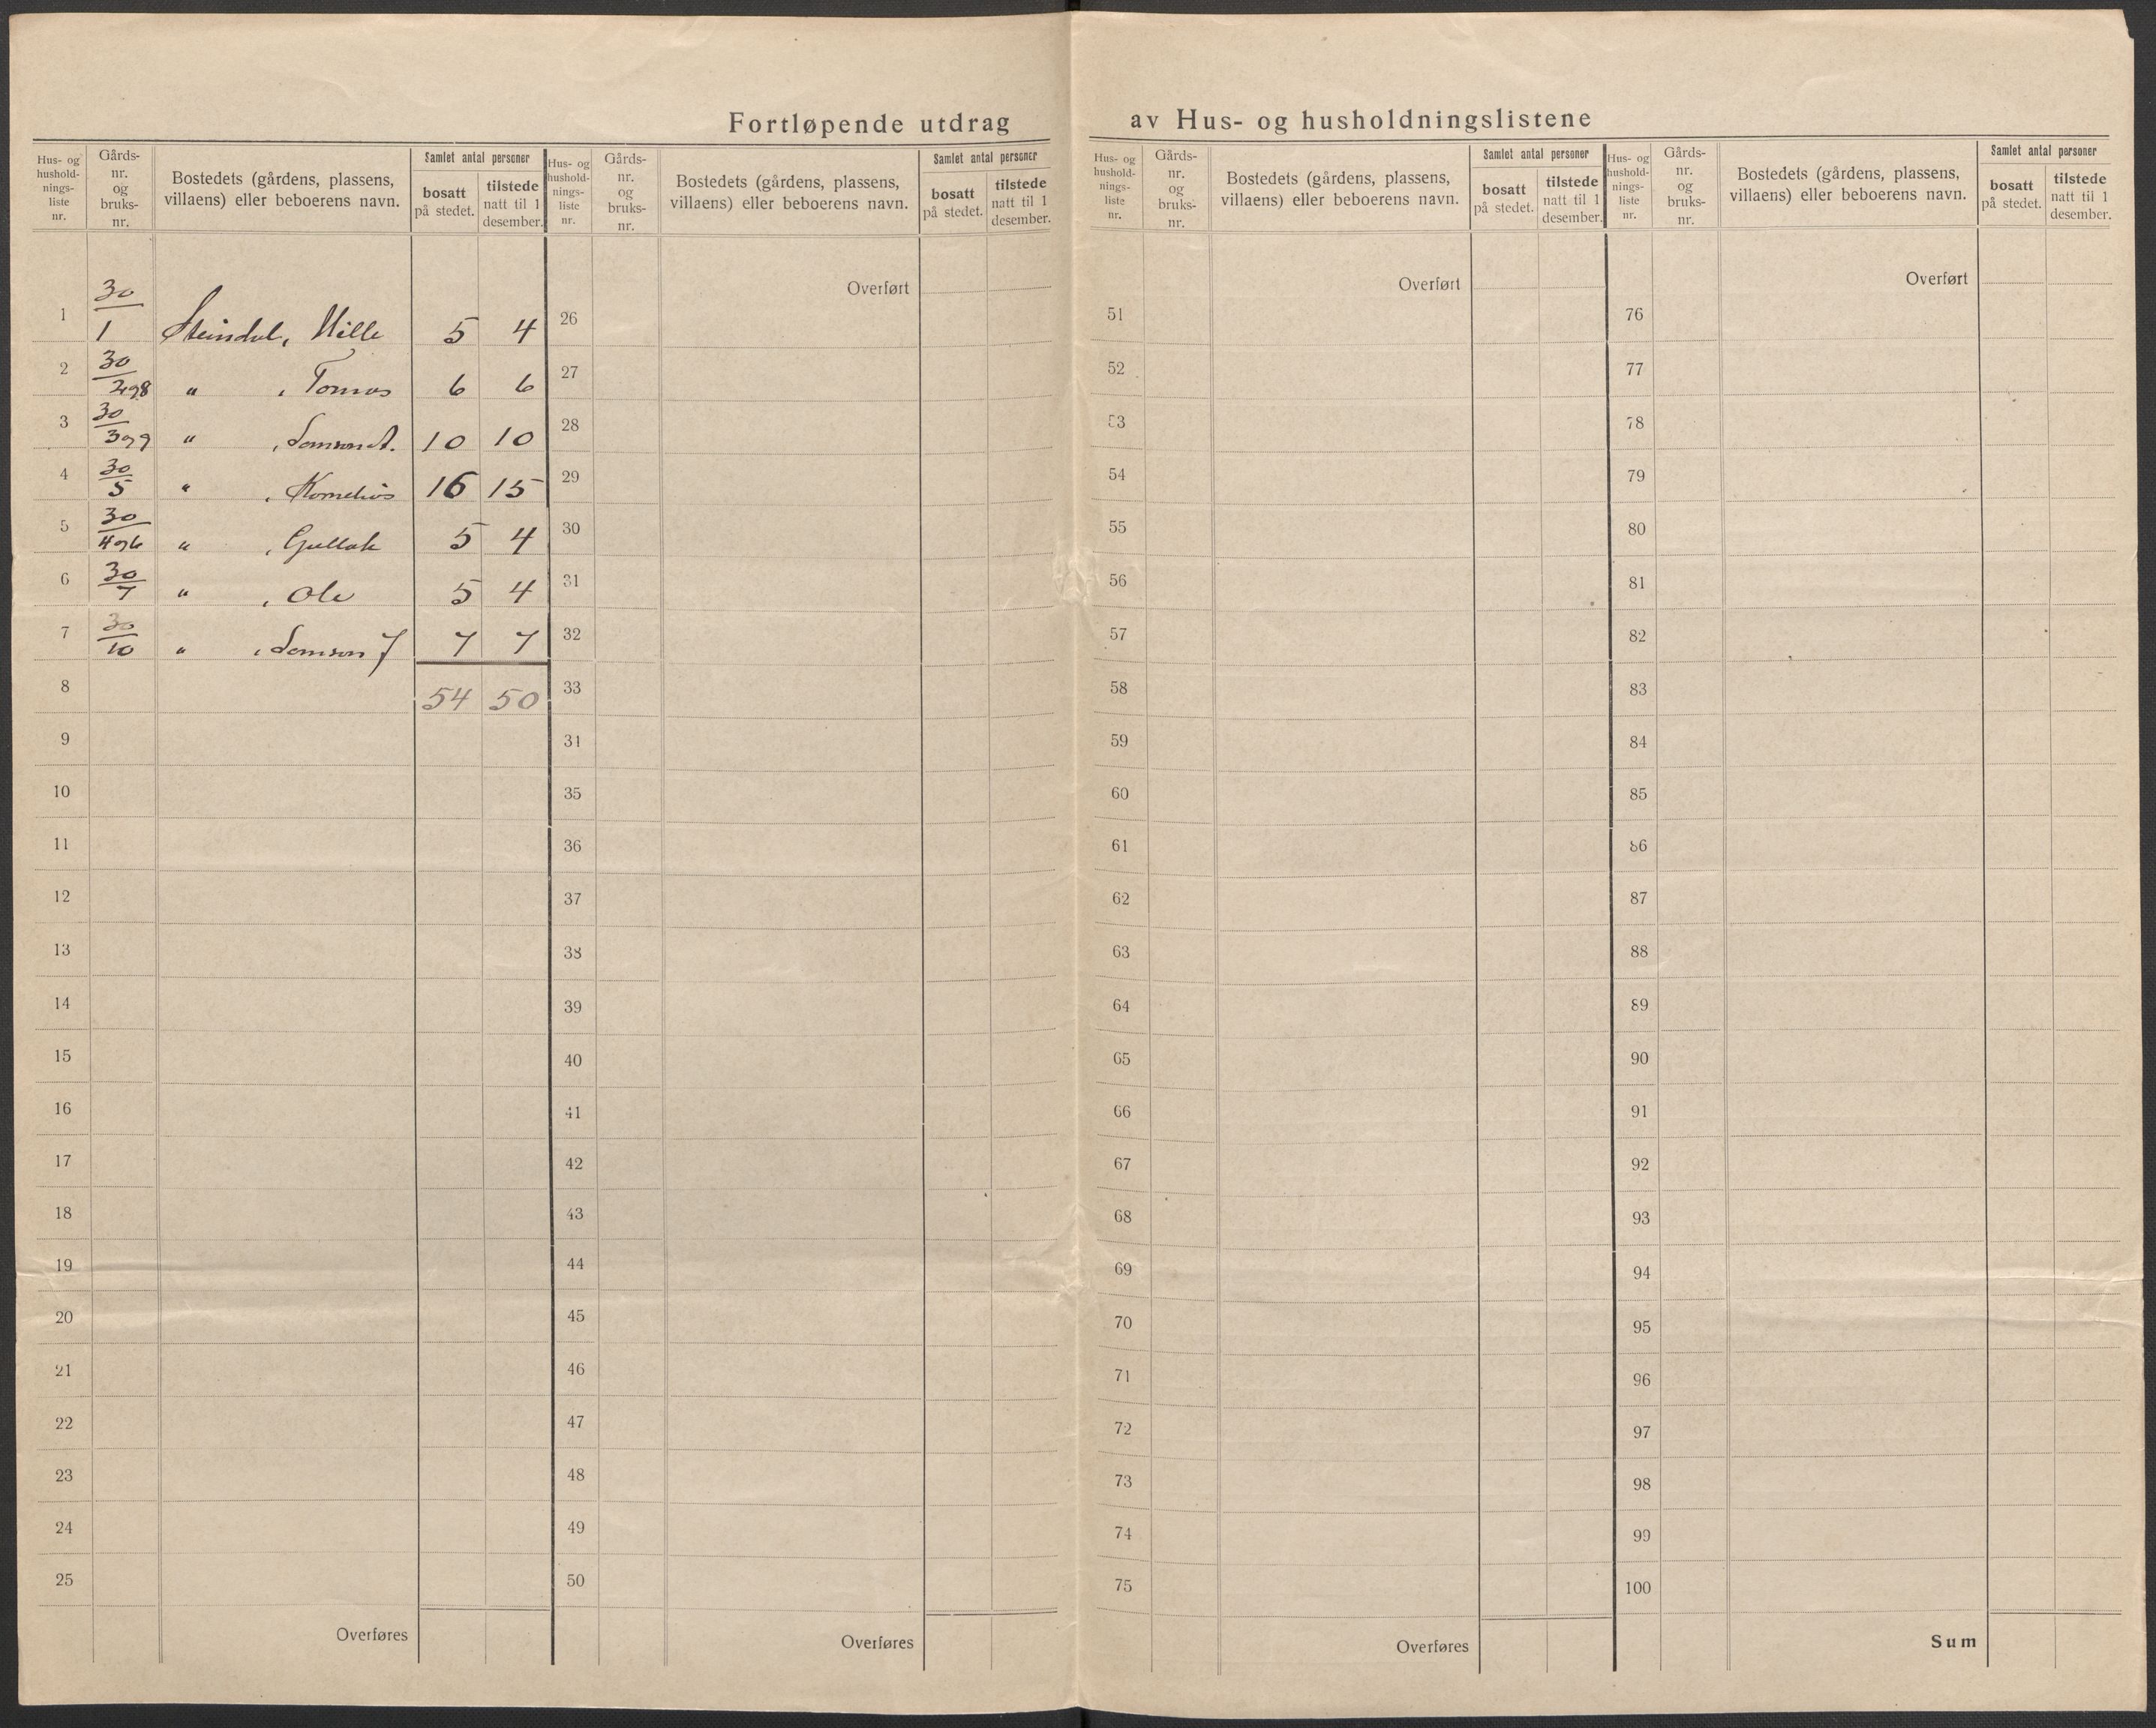 Fortløpende utdrag av Hus- og husholdningslistene
Hus- og hushold-nings-liste nr.
Gårds-nr. og bruks-nr.
Bostedets (gårdens, plassens, villaens) eller beboerens navn.
Samlet antal personer
bosatt på stedet.
tilstede natt til 1 desember.
1 30/1 Steindal, Mille 5 4
2 30/2 og 8 " , Tomas 6 6
3 30/3 og 9 " , Samson A. 10 10
4 30/5 " , Kornelius 16 15
5 30/4 og 6 " , Gullak 5 4
6 30/7 " , Ole 5 4
7 30/10 " , Samson J 7 7
8 54 50
9
10
11
12
13
14
15
16
17
18
19
20
21
22
23
24
25
Overføres
Hus- og hushold-nings-liste nr.
Gårds-nr. og bruks-nr.
Bostedets (gårdens, plassens, villaens) eller beboerens navn.
Samlet antal personer
bosatt på stedet.
tilstede natt til 1 desember.
Overført
26
27
28
29
30
31
32
33
31
35
36
37
38
39
40
41
42
43
44
45
46
47
48
49
50
Overføres
Hus- og hushold-nings-liste nr.
Gårds-nr. og bruks-nr.
Bostedets (gårdens, plassens, villaens) eller beboerens navn.
Samlet antal personer
bosatt på stedet.
tilstede natt til 1 desember.
Overført
51
52
53
54
55
56
57
58
59
60
61
62
63
64
65
66
67
68
69
70
71
72
73
74
75
Overføres
Hus- og hushold-nings-liste nr.
Gårds-nr. og bruks-nr.
Bostedets (gårdens, plassens, villaens) eller beboerens navn.
Samlet antal personer
bosatt på stedet.
tilstede natt til 1 desember.
Overført
76
77
78
79
80
81
82
83
84
85
86
87
88
89
90
91
92
93
94
95
96
97
98
99
100
Sum